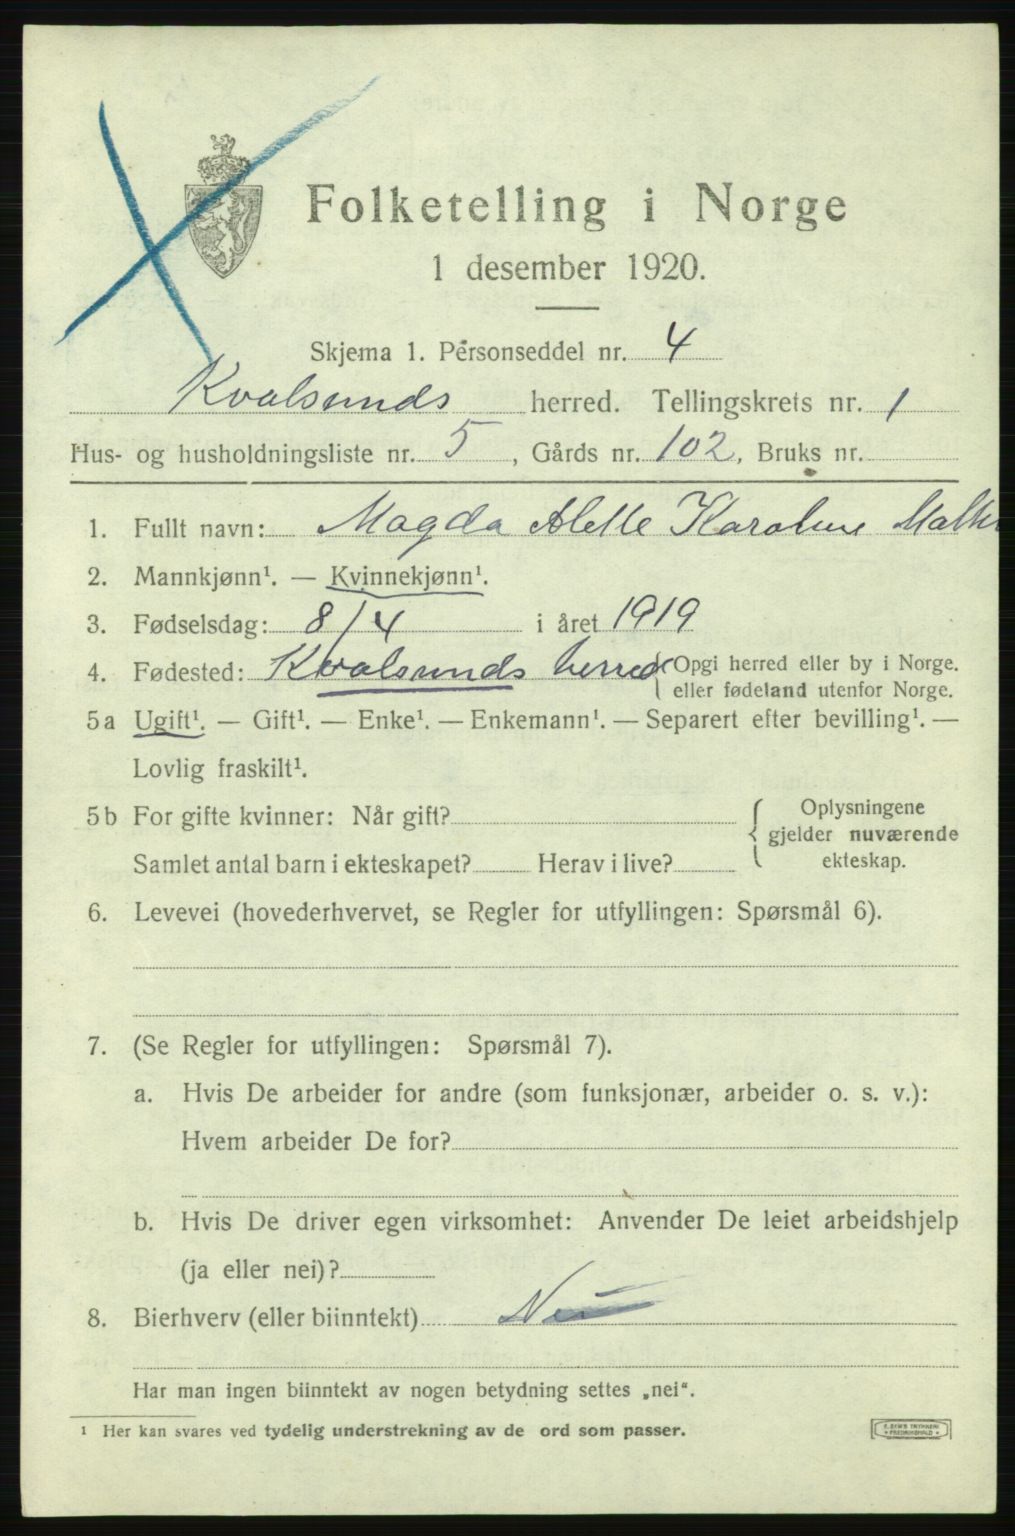 Folketelling i Norge
1 desember 1920.
Skjema 1. Personseddel nr. 4
Kvalsunds herred. Tellingskrets nr. 1
Hus- og husholdningsliste nr. 5, Gårds nr. 102, Bruks nr.
1. Fullt navn: Magda Alette Karoline
2. Mannkjønn¹. — Kvinnekjønn¹.
3. Fødselsdag: 8/4 i året 1919
4. Fødested: Kvalsunds herred { Opgi herred eller by i Norge.
eller fødeland utenfor Norge.
5a Ugift¹. — Gift¹. — Enke¹. — Enkemann¹. — Separert efter bevilling¹. —
Lovlig fraskilt¹.
5b For gifte kvinner: Når gift? { Oplysningene
gjelder nuværende
Samlet antal barn i ekteskapet? Herav i live? ekteskap.
6. Levevei (hovederhvervet, se Regler for utfyllingen: Spørsmål 6).
7. (Se Regler for utfyllingen: Spørsmål 7).
a. Hvis De arbeider for andre (som funksjonær, arbeider o. s. v.):
Hvem arbeider De for?
b. Hvis De driver egen virksomhet: Anvender De leiet arbeidshjelp
(ja eller nei)?
8. Bierhverv (eller biinntekt) Nei
Har man ingen biinntekt av nogen betydning settes „nei“.
¹ Her kan svares ved tydelig understrekning av de ord som passer.